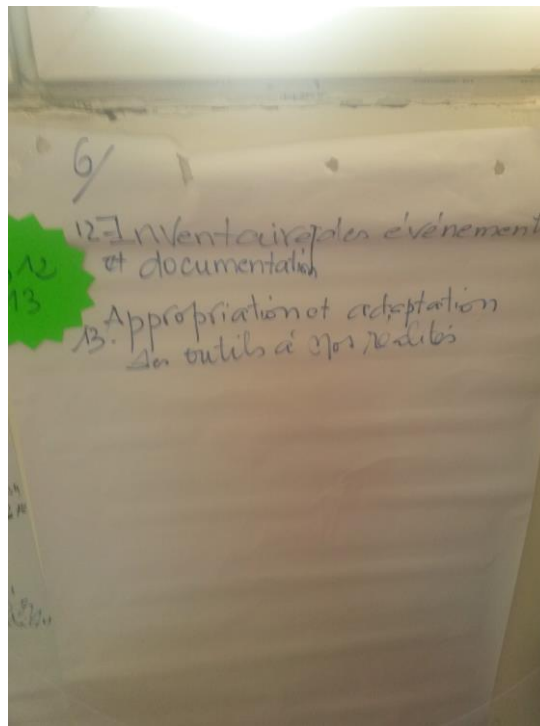 6/
12- Inventaire des événement
et documentation
,12
13
13. Appropriation et adaptation
des outils à nos réalités